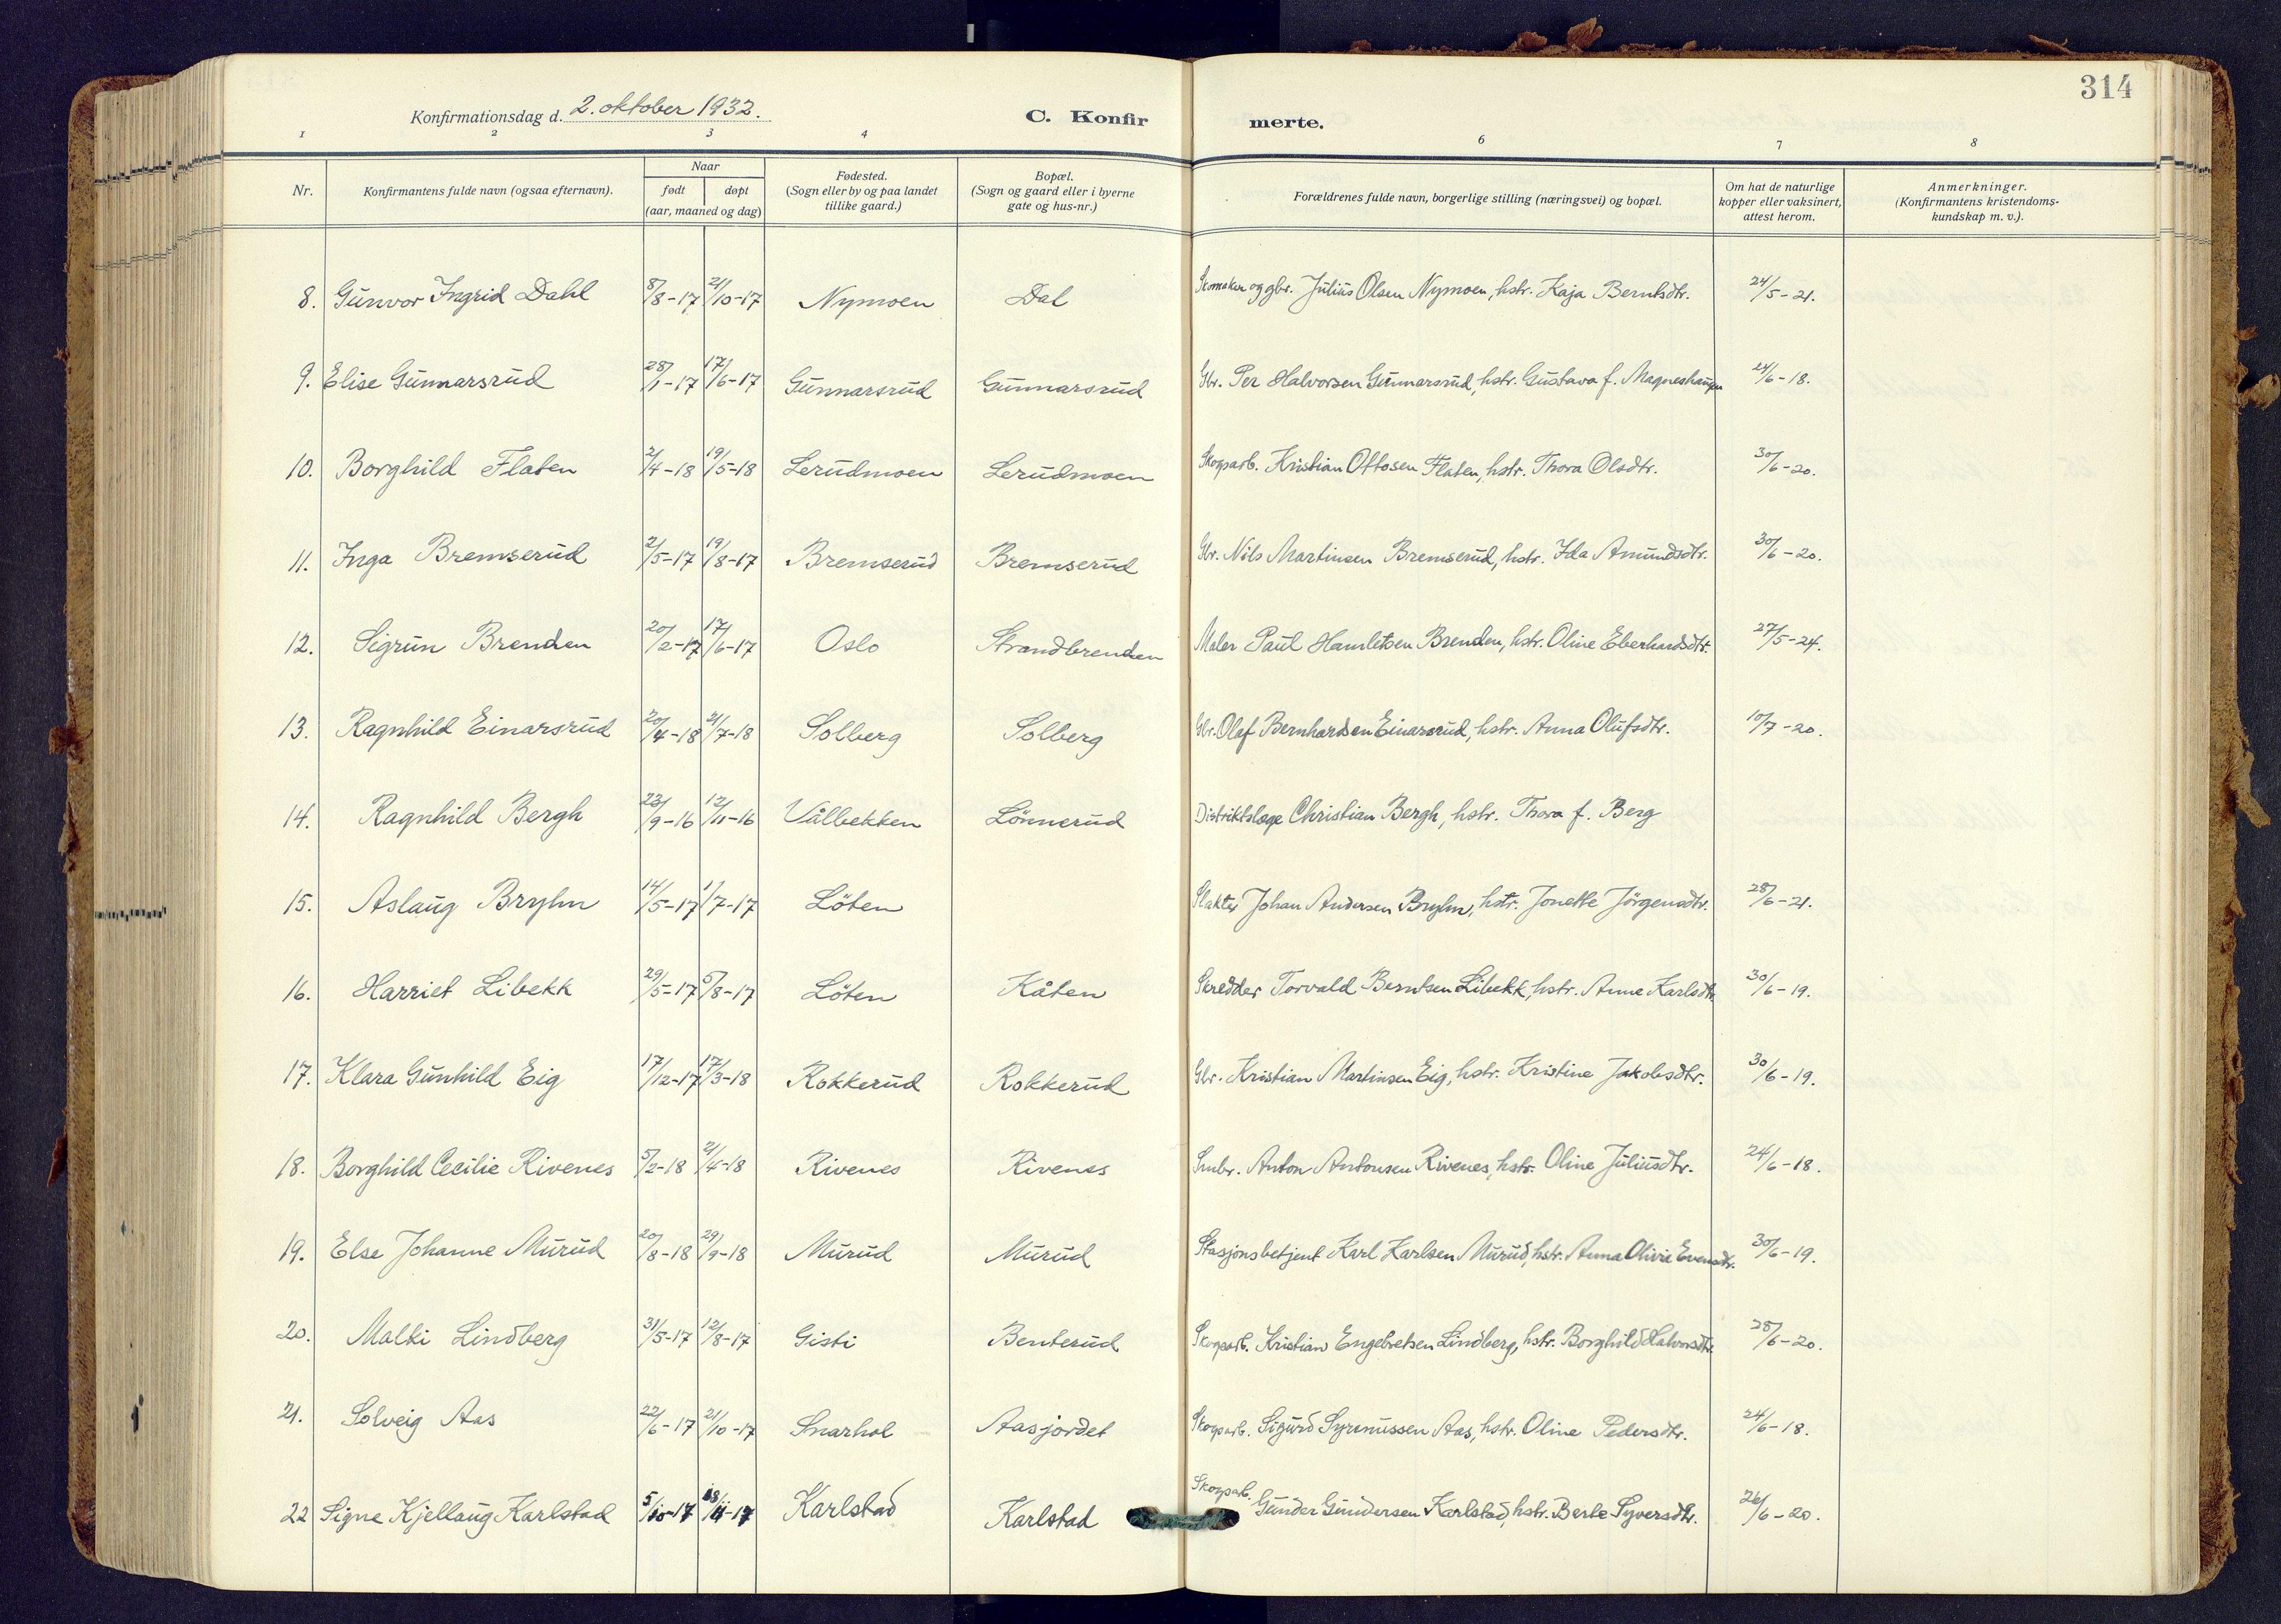 314
Konfirmationsdag d. 2. oktober 1932. C. Konfir merte.
1 2 3 4 6 7 8
Nr. Konfirmantens fulde navn (ogsaa efternavn). Naar født døpt (aar, maaned og dag) Fødested. (Sogn eller by og paa landet tillike gaard.) Bopæl. (Sogn og gaard eller i byerne gate og hus-nr.) Forældrenes fulde navn, borgerlige stilling (næringsvei) og bopæl. Om hat de naturlige kopper eller vaksinert, attest herom. Anmerkninger. (Konfirmantens kristendoms-kundskap m. v.).
8. Gunvor Ingrid Dahl 8/8-17 21/10-17 Nymoen Dal Skomaker og gbr. Julius Olsen Nymoen, hstr. Kaja Berntsdtr. 24/5-21.
9. Elise Gunnarsrud 28/1-17 17/6-17 Gunnarsrud Gunnarsrud Gbr. Per Halvorsen Gunnarsrud, hstr. Gustava f. Magneshaugen 24/6-18.
10. Borghild Flaten 2/4-18 19/5-18 Lerudmoen Lerudmoen Skogsarb. Kristian Ottosen Flaten, hstr. Thora Olsdtr. 30/6-20.
11. Inga Bremserud 2/5-17 19/8-17 Bremserud Bremserud Gbr. Nils Martinsen Bremserud, hstr. Ida Amundsdtr. 30/6-20.
12. Sigrun Brenden 20/2-17 17/6-17 Oslo Strandbrenden Maler Paul Hamletsen Brenden, hstr. Oline Eberhardsdtr. 27/5-24.
13. Ragnhild Einarsrud 20/4-18 21/7-18 Solberg Solberg Gbr. Olaf Bernhardsen Einarsrud, hstr. Anna Olufsdtr. 10/7-20.
14. Ragnhild Bergh 22/9-16 12/11-16 Vålbekken Lönnerud Distriktslæge Christian Bergh, hstr. Thora f. Berg
15. Aslaug Bryhn 14/5-17 1/7-17 Löten Slakter Johan Andersen Bryhn, hstr. Jonette Jörgensdtr. 28/6-21.
16. Harriet Libekk 29/5-17 5/8-17 Löten Kåten Skredder Torvald Berntsen Libekk, hstr. Anne Karlsdtr. 30/6-19.
17. Klara Gunhild Eig 17/12-17 17/3-18 Rokkerud Rokkerud Gbr. Kristian Martinsen Eig, hstr. Kristine Jakobsdtr. 30/6-19.
18. Borghild Cecilie Rivenes 5/2-18 21/4-18 Rivenes Rivenes Smbr. Anton Antonsen Rivenes, hstr. Oline Juliusdtr. 24/6-18.
19. Else Johanne Murud 20/8-18 29/9-18 Murud Murud Stasjonsbetjent Karl Karlsen Murud, hstr. Anna Olivie Evensdtr. 30/6-19.
20. Malki Lindberg 31/5-17 12/8-17 Gisti Benterud Skogsarb. Kristian Engebretsen Lindberg, hstr. Borghild Halvorsdtr. 28/6-20.
21. Solveig Aas 22/6-17 21/10-17 Snarhol Aasjordet Skogsarb. Sigurd Syrinussen Aas, hstr. Oline Pedersdtr. 24/6-18.
22 Signe Kjellaug Karlstad 5/10-17 18/11-17 Karlstad Karlstad Skogsarb. Gunder Gundersen Karlstad, hstr. Berte Syversdtr. 26/6-20.